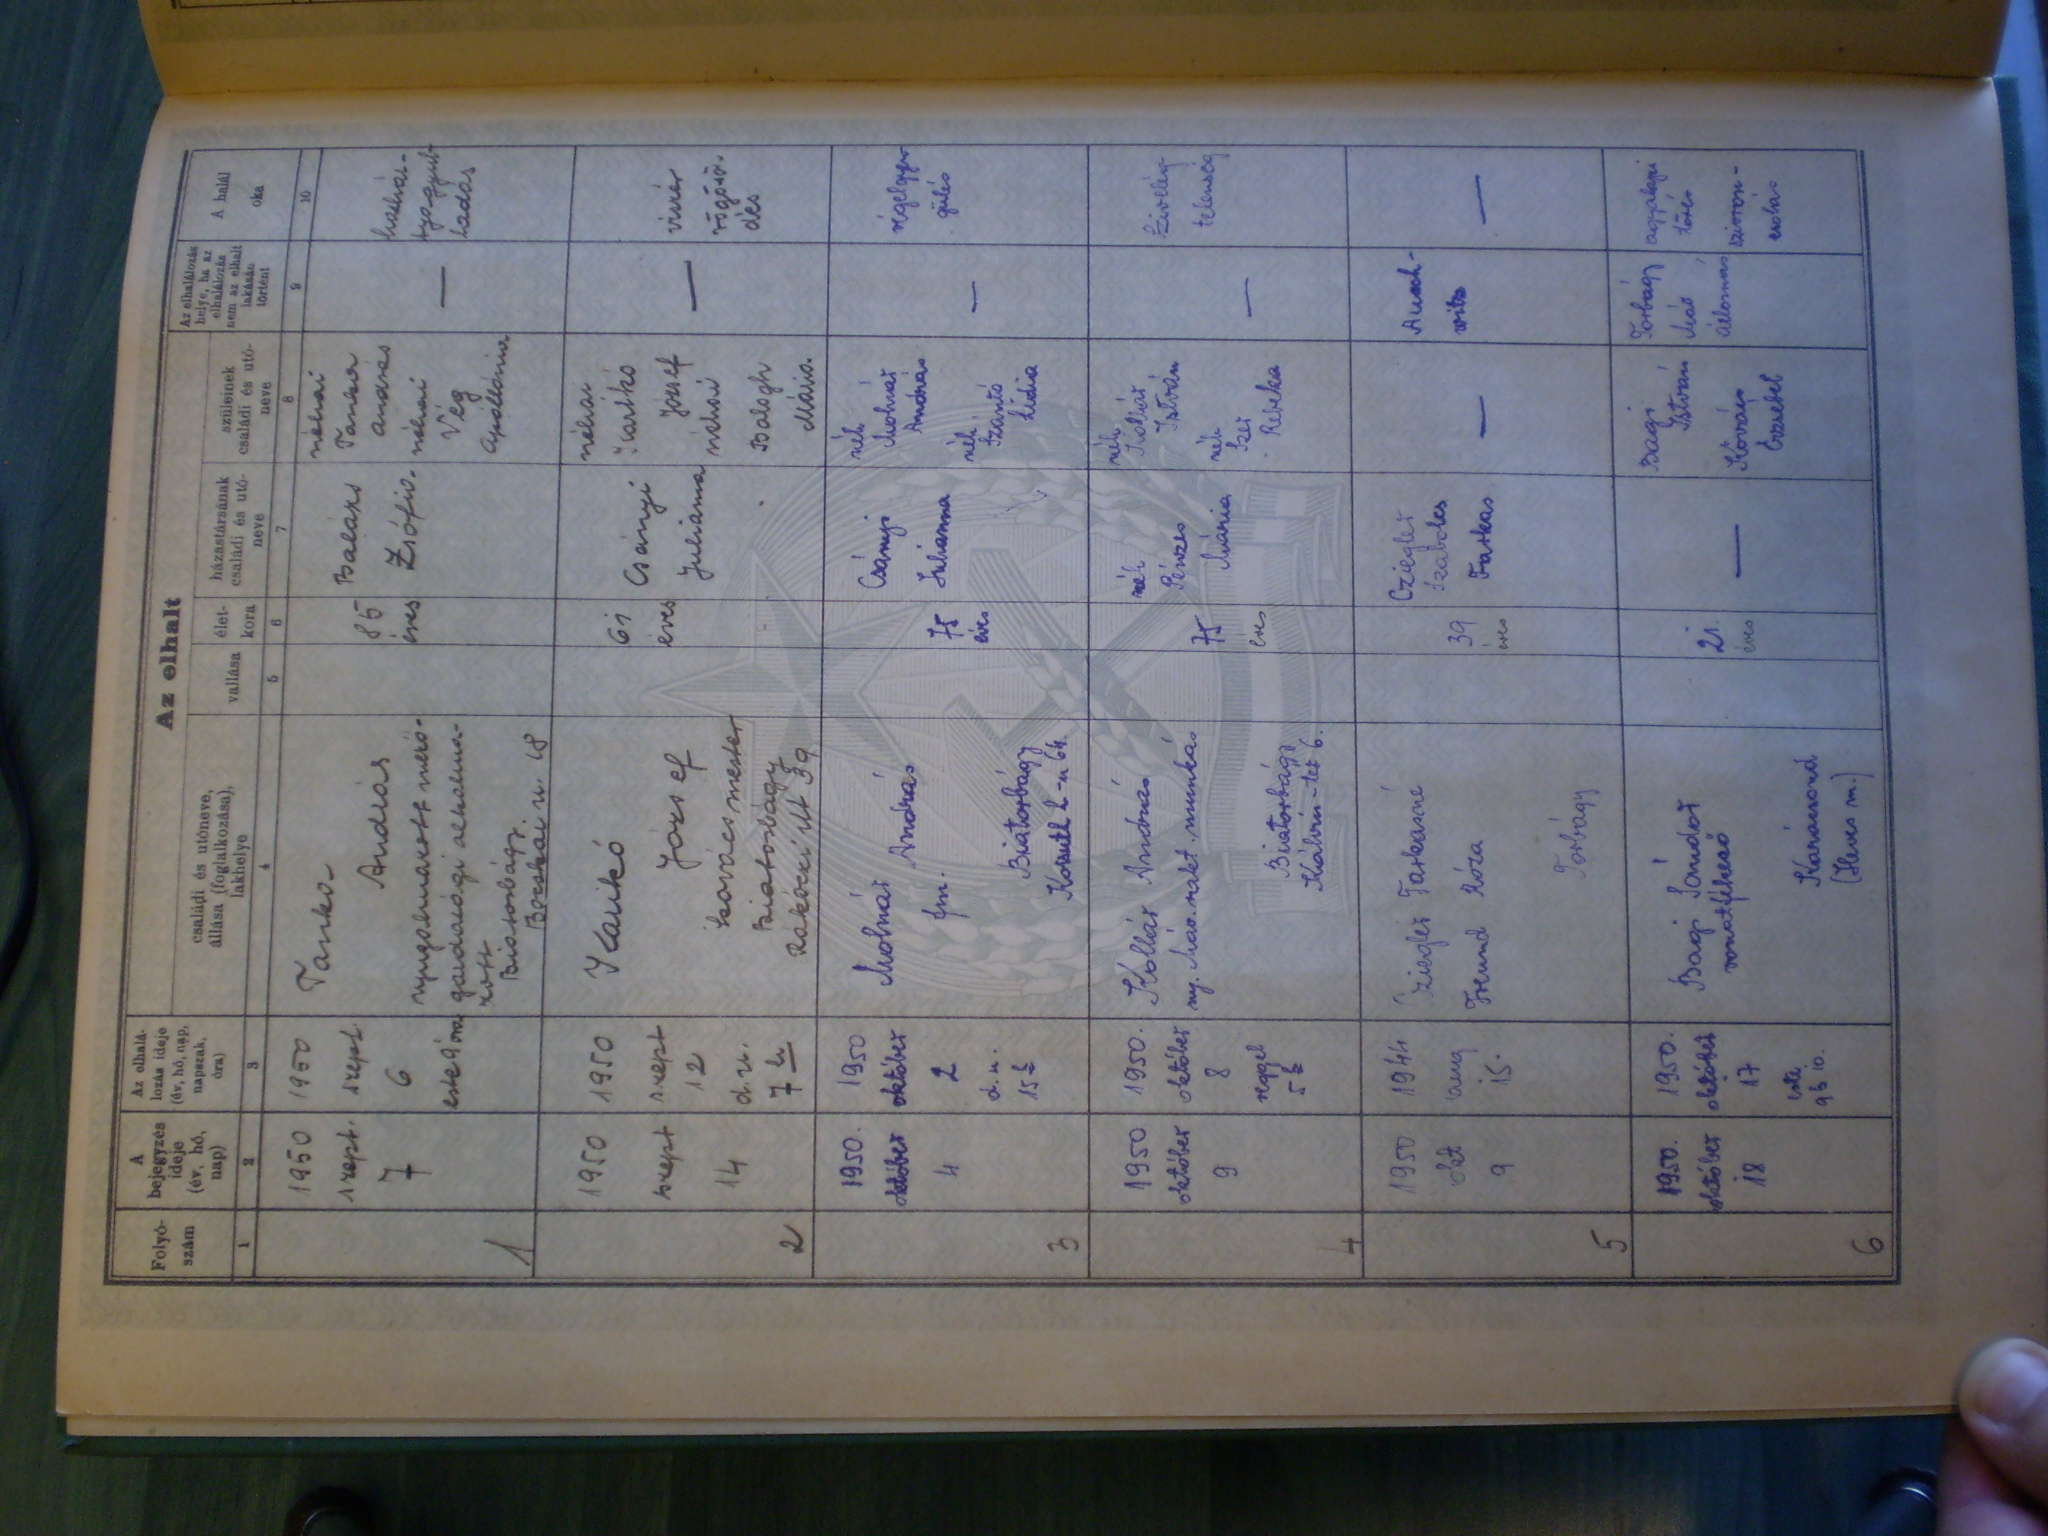 Az elhalt
Folyó-
szám
A
bejegyzés
ideje
(év, hó,
nap)
Az elhalá-
lozás ideje
(év, hó, nap,
napszak,
óra)
családi és utóneve,
állása (foglalkozása),
lakhelye
vallása
élet-
kora
házastársának
családi és utó-
neve
szüleinek
családi és utó-
neve
Az elhalálozás
helye, ha az
elhalálozás
nem az elhalt
lakásán
történt
A halál
oka
1
2
3
4
5
6
7
8
9
10
1
1950
szept.
7
1950
szept.
6
este 9 óra
Tanka
András
nyugalmazott
gazdasági alkalma-
zott
Biatorbágy.
Bocskai u. 18
85
éves
Balázs
Zsófia.
néhai
Tanka
András
néhai
Vég
Apollónia
—
2
1950
szept
14
1950
szept
12
d.u.
7 h
József
kovácsmester
Biatorbágy
Rákóczi út 39
61
éves
Csányi
Juliánna
néhai
József
néhai
Balogh
Mária.
—
3
1950.
október
4
1950
október
2
d.u.
15 h
Molnár András
fm.
Biatorbágy
Kossuth L-u 64.
75
éves
Csányi
Julianna
néh.
Molnár
András
néh.
Szántó
Lidia
—
végelgyen
gülés
4
1950
október
9
1950.
október
8
reggel
5 h
Kollár András
ny. Máv. rakt. munkás
Biatorbágy
Kálvin-tér 6.
75
éves
néh
Pénzes
Mária
néh
Kollár
István
néh
Szél
Rebeka
—
Szívelég
telenség
5
1950
okt
9
1944
15.
Farkasné
Freund Róza
Torbágy
39
éves
Cziegler
Szabolcs
Farkas
—
Ausch-
witz
—
6
1950.
október
18
1950.
október
17
este
9 h 10.
Bagi Sándor
vonatfékező
Karácsond
(Heves m.)
21.
éves
—
Bagi
István
Kovács
Erzsébet
Torbágy
Máv
Állomás